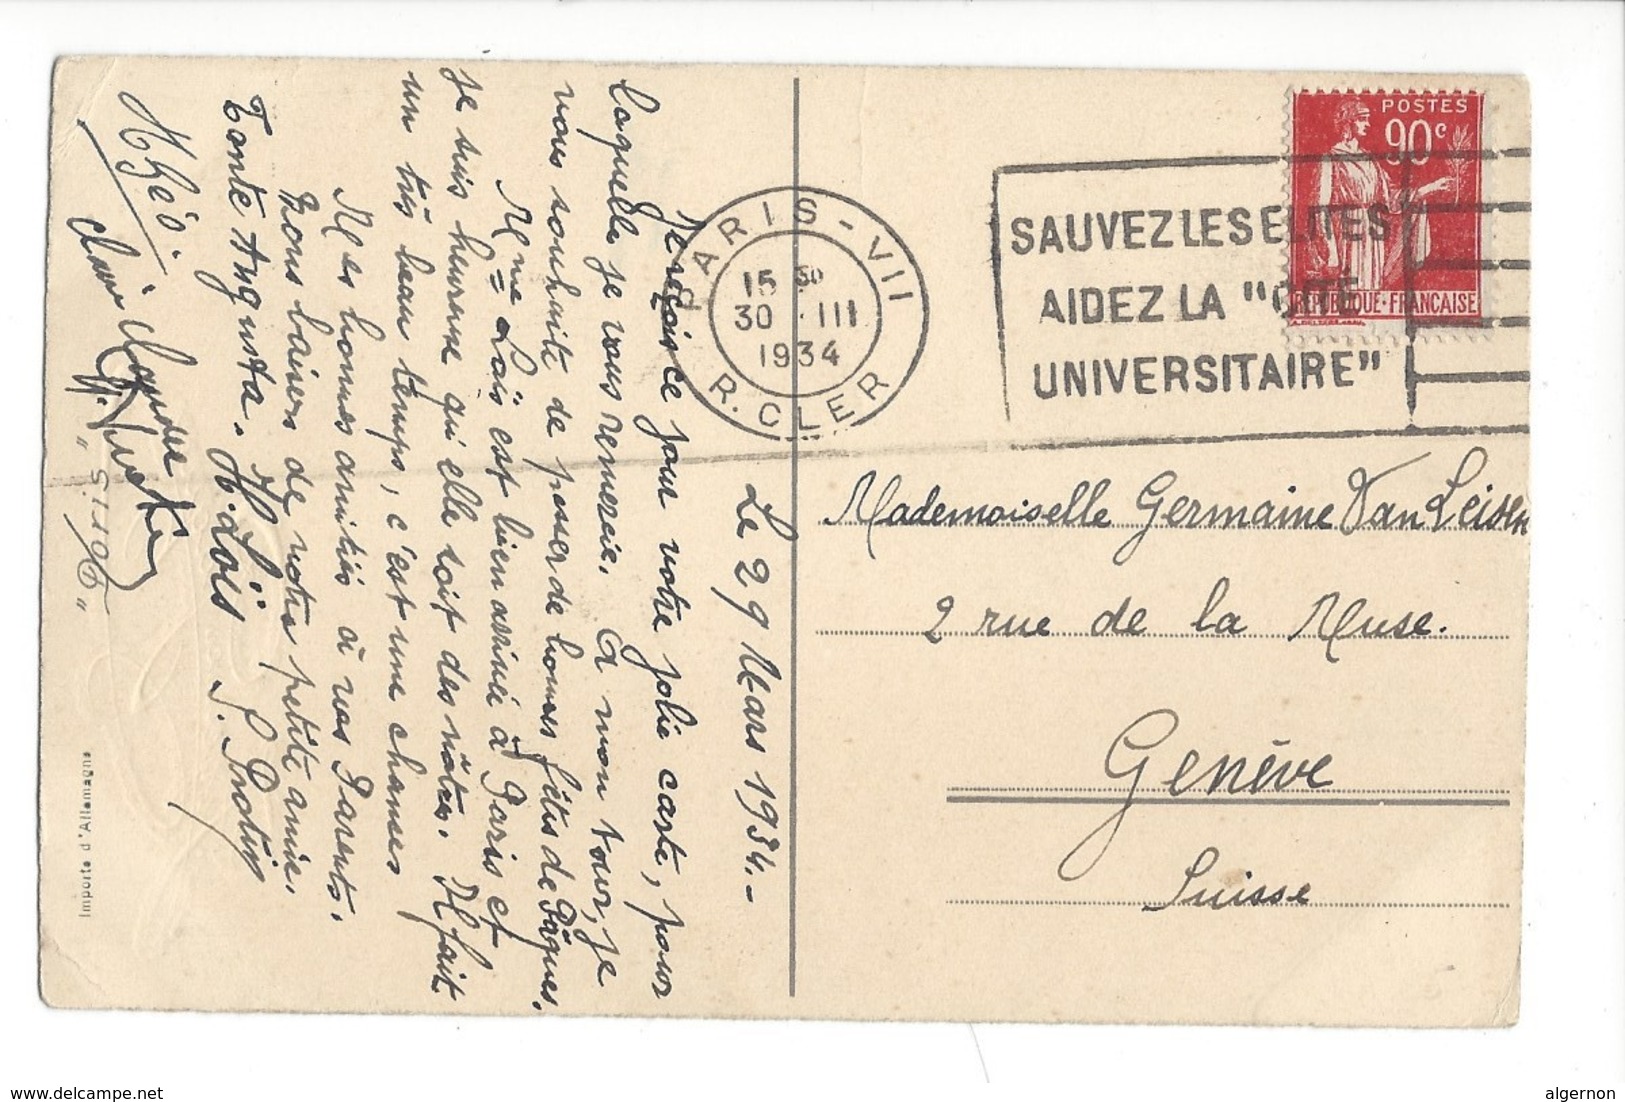 Le 29 Mars 1934.-
Je reçois ce jour votre jolie carte, pour
laquelle je vous remercie. A mon tour, je
vous souhaite de passer de bonnes fêtes de Pâques.
Mme Loïs est bien arrivée à Paris et
je suis heureuse qu'elle soit des nôtres. Il fait
un très beau temps, c'est une chance
Mes bonnes amitiés à vos Parents.
Bons baisers de votre petite amie.
Tante Augusta. H. Loïs
Théo.
Importe d'Allemagne
PARIS - VII
15 30
30 III
1934
R. CLER
SAUVEZ LES ELITES
AIDEZ LA "CITÉ
UNIVERSITAIRE"
POSTES
90c
REPUBLIQUE·FRANÇAISE
Mademoiselle Germaine Van Leisen
2 rue de la Muse.
Genève
Suisse
www.delcampe.net
algernon